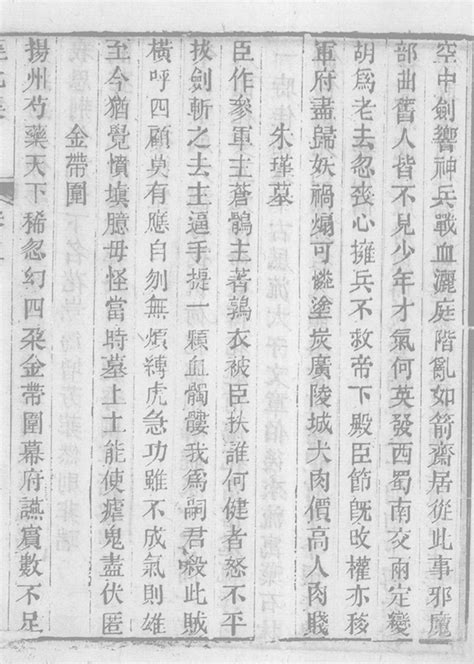 空中劍響神兵戰血灑庭階亂如箭齋居從此事邪魔
部曲舊人皆不見少年才氣何英發西蜀南交兩定變
胡為老去忽喪心擁兵不救帝下殿臣節旣改權亦移
軍府盡歸妖禍煽可憐塗炭廣陵城犬肉價高人肉賤
朱瑾墓
臣作參軍主蒼鶻主著鶉衣被臣扶誰何健者怒不平
拔劍斬之去主逼手提一顆血髑髏我為嗣君殺此賊
橫呼四顧莫有應自刎無煩縛虎急功雖不成氣則雄
至今猶覺憤塡臆毋怪當時墓上土能使瘧鬼盡伏匿
金帶圍
揚州芍藥天下稀忽幻四朶金帶圍幕府讌賓數不足